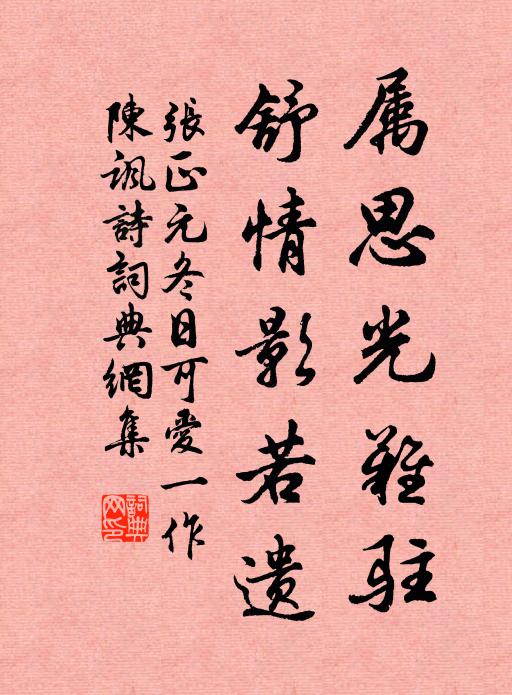 属思光難驻
舒情影若遗
張正元冬日可愛一作
陳諷詩詞典網集
詞典
网印